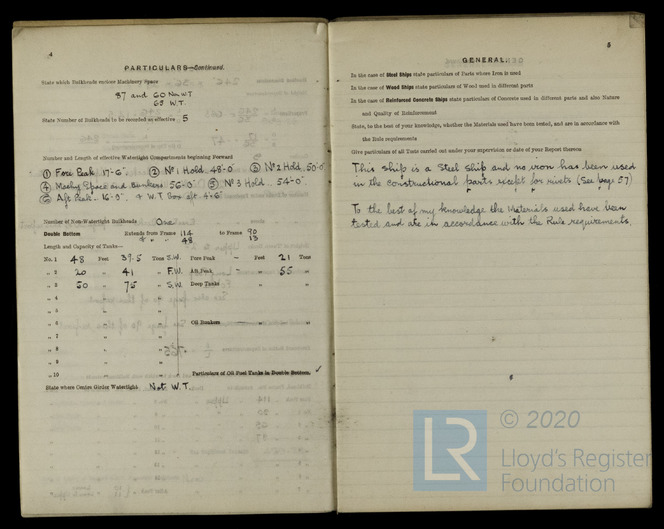 4
PARTICULARS—Continued.
State which Bulkheads enclose Machinery Space
37 and 60 Non W T
65 W. T.
State Number of Bulkheads to be recorded as effective 5
Number and Length of effective Watertight Compartments beginning Forward
① Fore Peak. 17'-6" ② Nº 1 Hold 48'-0" ③ Nº 2 Hold 50'-0"
④ Machy Space and Bunkers 56'-0" ⑤ Nº 3 Hold 54'-0"
⑥ Aft Peak. 16'-9" + W.T. Box aft 4'-6"
Number of Non-Watertight Bulkheads One
Double Bottom Extends from Frame 114 to Frame 90
" " 48 13
Length and Capacity of Tanks—
No. 1 48 Feet 37.5 Tons S.W. Fore Peak — Feet 21 Tons
" 2 20 " 41 " F.W. Aft Peak — " 55 "
" 3 50 " 75 " S.W. Deep Tanks " "
" 4 " "
" 5 " "
" 6 " " Oil Bunkers " "
" 7 " "
" 8 " "
" 9 " "
" 10 " " Particulars of Oil Fuel Tanks in Double Bottom.
State where Centre Girder Watertight Not W.T.
5
GENERAL:
In the case of Steel Ships state particulars of Parts where Iron is used
In the case of Wood Ships state particulars of Wood used in different parts
In the case of Reinforced Concrete Ships state particulars of Concrete used in different parts and also Nature
and Quality of Reinforcement
State, to the best of your knowledge, whether the Materials used have been tested, and are in accordance with
the Rule requirements
Give particulars of all Tests carried out under your supervision or date of your Report thereon
This ship is a Steel Ship and no iron has been used
in the constructional parts except for rivets (See page 57)
To the best of my knowledge the Materials used have been
tested and are in accordance with the Rule requirements.
© 2020
LR
Lloyd's Register
Foundation